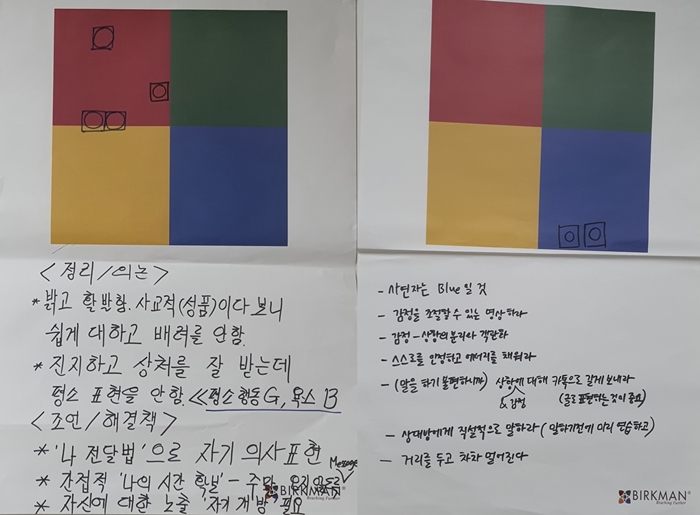 <정리/의논>
* 밝고 활발함. 사교적(성품)이다 보니
쉽게 대하고 배려를 안함.
* 진지하고 상처를 잘 받는데
평소 표현을 안함. << 평소행동G, 욕스 B
<조언/해결책>
* '나 전달법'으로 자기 의사표현
* 간접적 '나의 시간 확보' - 주말
Message
* 자신에 대한 노출 '자기 개방' 필요
BIRKMAN
- 사연자는 Blue일 것
- 감정을 조절할 수 있는 명상하라
- 감정-상황의 분리와 객관화
- 스스로를 인정하고 에너지를 채워라
- (말을 하기 불편하니까) 상황에 대해 카톡으로 길게 보내라
& 감정
(글로 표현하는 것이 중요)
- 상대방에게 직설적으로 말하라 (말하기전에 미리 연습하고)
- 거리를 두고 차차 멀어진다
BIRKMAN
Reaching Further